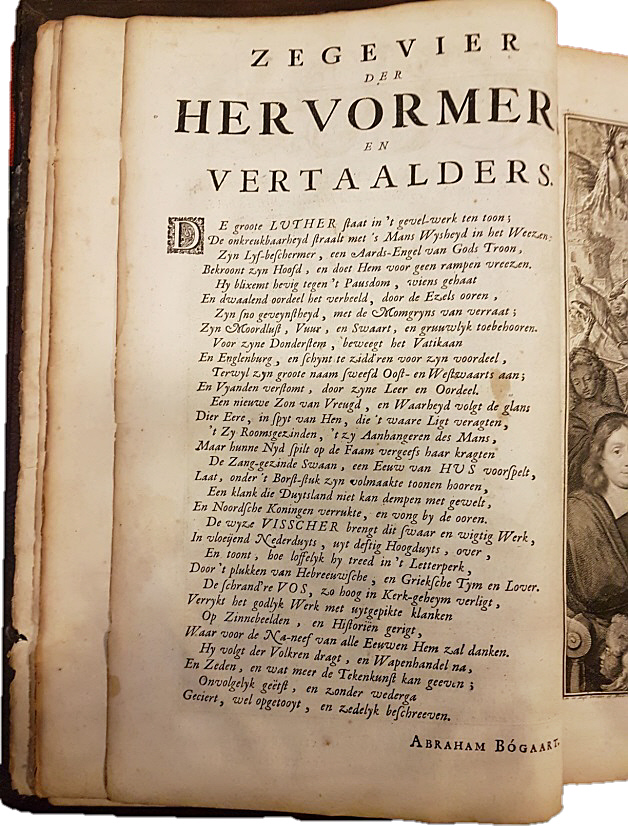 ZEGEVIER
DER
HERVORMER
EN
VERTAALDERS.
DE groote LUTHER staat in 't gevel-werk ten toon;
De onkreukbaarheyd straalt met 's Mans Wysheyd in het Weezen:
Zyn Lyf-beschermer, een Aards-Engel van Gods Troon,
Bekroont zyn Hoofd, en doet Hem voor geen rampen vreezen.
Hy blixemt hevig tegen 't Pausdom, wiens gehaat
En dwaalend oordeel het verbeeld, door de Ezels ooren,
Zyn sno geveynstheyd, met de Momgryns van verraat;
Zyn Moordlust, Vuur, en Swaart, en gruuwlyk toebehooren.
Voor zyne Donderstem, beweegt het Vatikaan
En Englenburg, en schynt te zidd'ren voor zyn voordeel,
Terwyl zyn groote naam sweefd Oost- en Westwaarts aan;
En Vyanden verstomt, door zyne Leer en Oordeel.
Een nieuwe Zon van Vreugd, en Waarheyd volgt de glans
Dier Eere, in spyt van Hen, die 't waare Ligt veragten,
't Zy Roomsgezinden, 't zy Aanhangeren des Mans,
Maar hunne Nyd spilt op de Faam vergeefs haar kragten
De Zang-gezinde Swaan, een Eeuw van HUS voorspelt,
Laat, onder 't Borst-stuk zyn volmaakte toonen hooren,
Een klank die Duytsland niet kan dempen met gewelt,
En Noordsche Koningen verrukte, en vong by de ooren.
De wyze VISSCHER brengt dit swaar en wigtig Werk,
In vloeijend Nederduyts, uyt deftig Hoogduyts, over,
En toont, hoe loffelyk hy treed in 't Letterperk,
Door 't plukken van Hebreeuwsche, en Grieksche Tym en Lover.
De schrand're VOS, zo hoog in Kerk-geheym verligt,
Verrykt het godlyk Werk met uytgepikte klanken
Op Zinnebeelden, en Historiën gerigt,
Waar voor de Na-neef van alle Eeuwen Hem zal danken.
Hy volgt der Volkren dragt, en Wapenhandel na,
En Zeden, en wat meer de Tekenkunst kan geeven;
Onvolgelyk geëtst, en zonder wederga
Geciert, wel opgetooyt, en zedelyk beschreeven.
ABRAHAM BÓGAART.